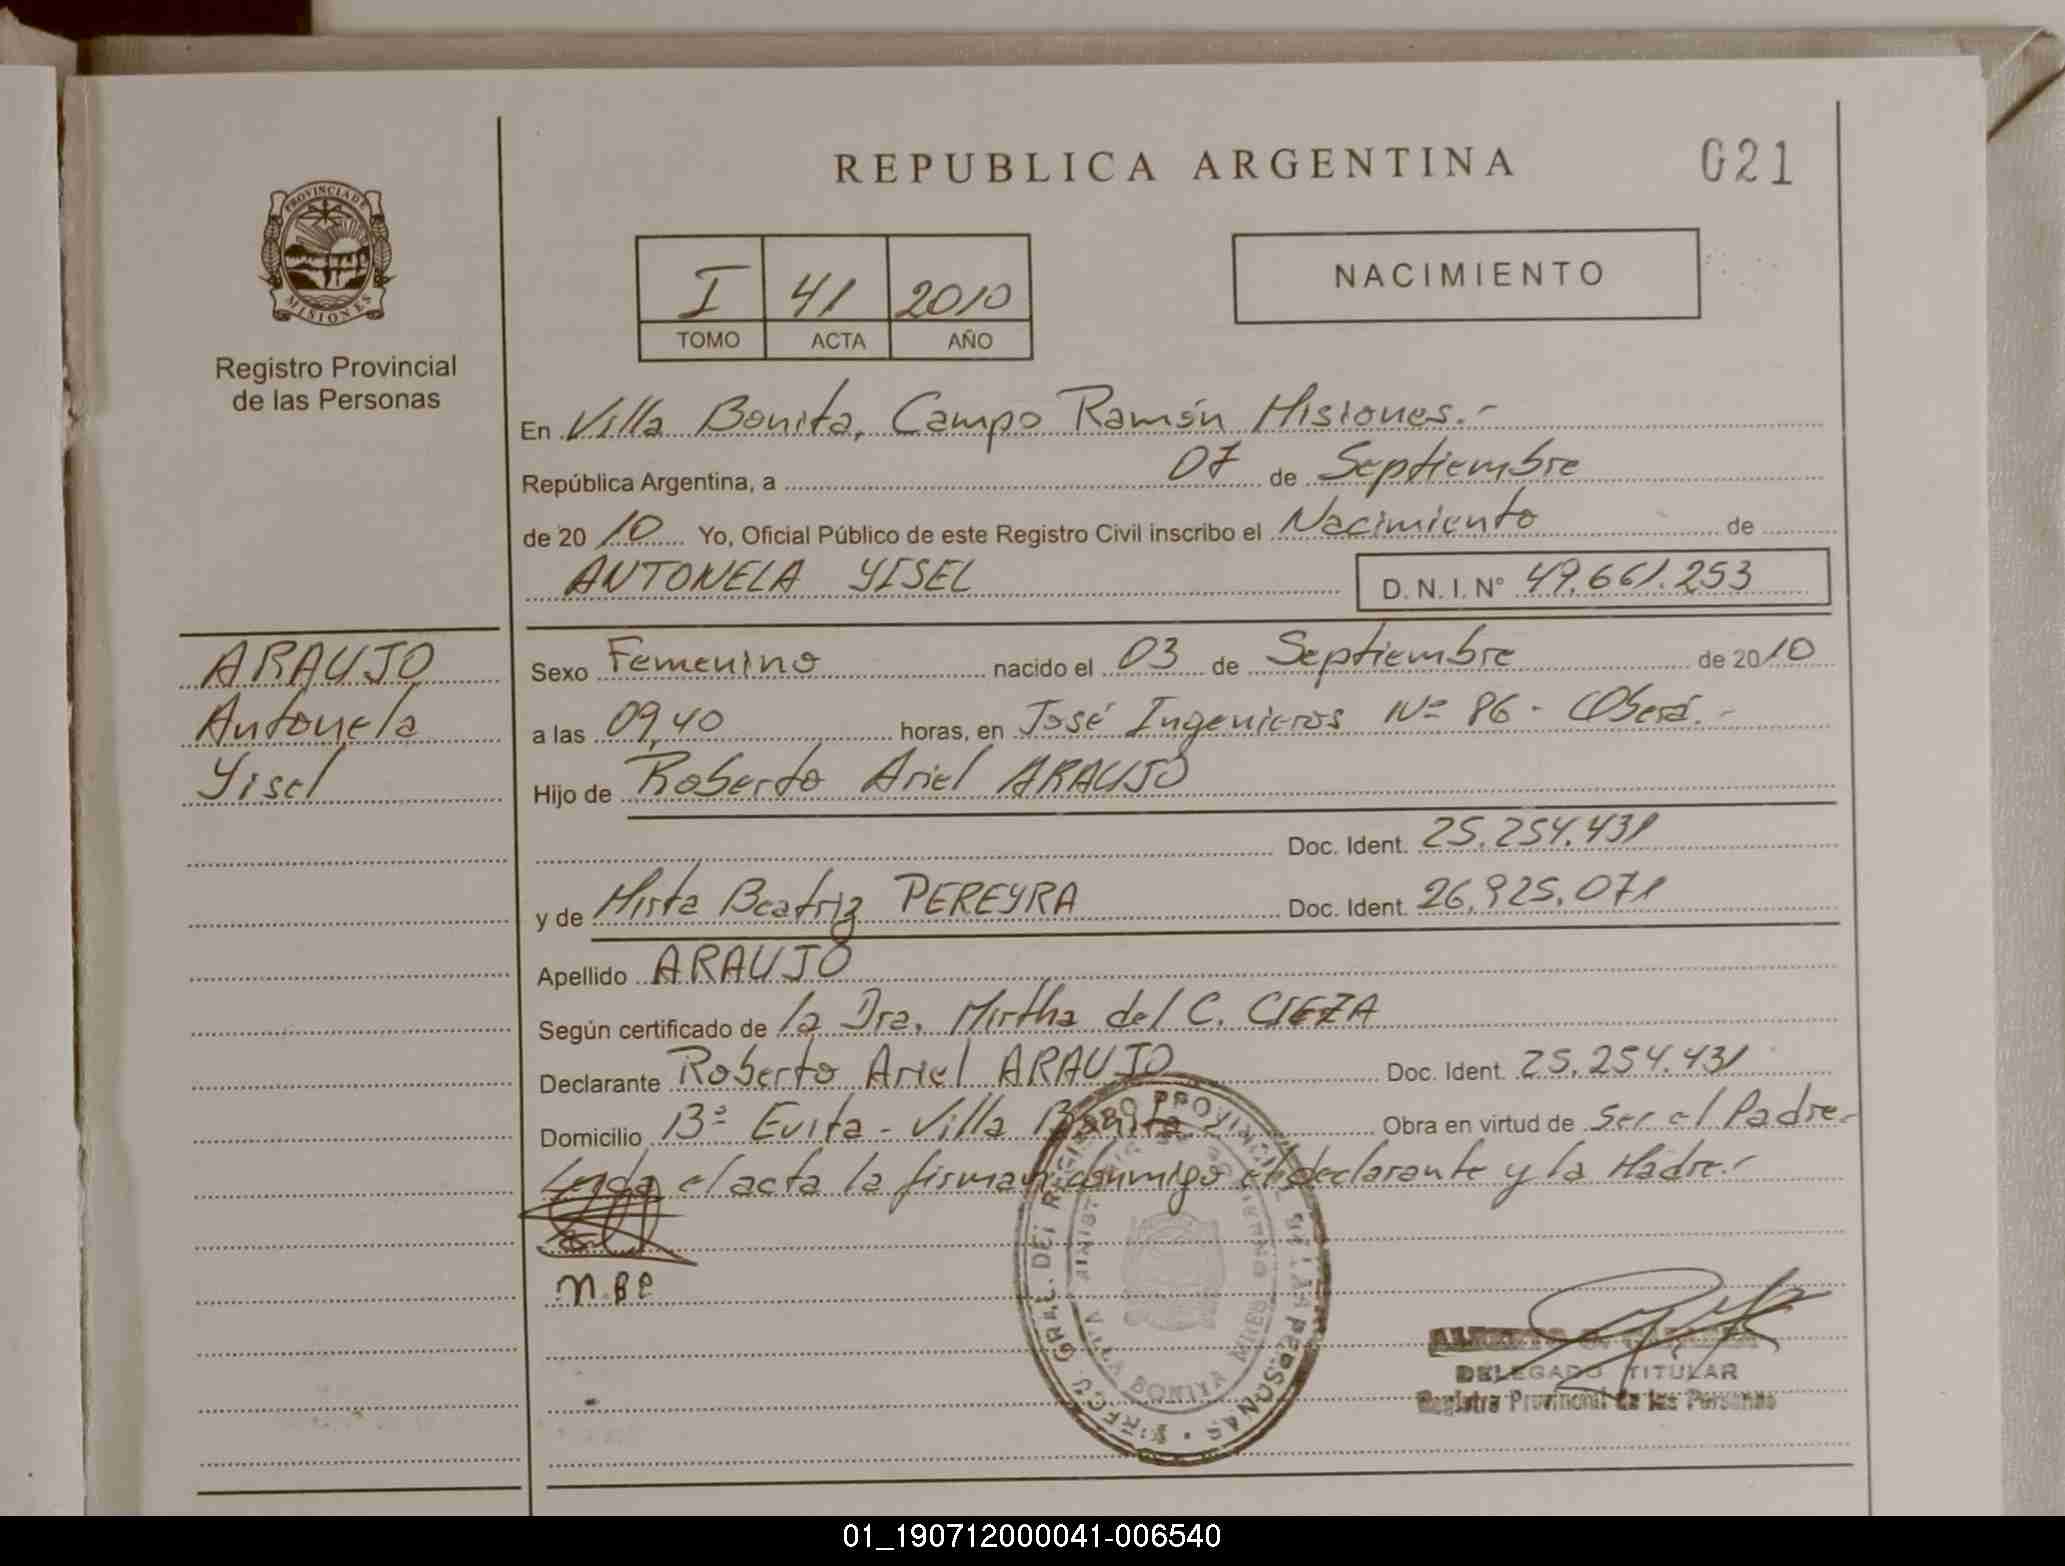 REPUBLICA ARGENTINA
021
PROVINCIA DE
MISIONES
Registro Provincial
de las Personas
I 41 2010
TOMO ACTA AÑO
NACIMIENTO
En Villa Bonita, Campo Ramón Misiones.-
República Argentina, a 07 de Septiembre
de 2010 Yo, Oficial Público de este Registro Civil inscribo el Nacimiento de
ANTONELA YISEL D. N. I. N° 49.661.253
ARAUJO
Antonela
Yisel
Sexo Femenino nacido el 03 de Septiembre de 2010
a las 09,40 horas, en José Ingenieros Nº 86 - Oberá.-
Hijo de Roberto Ariel ARAUJO
Doc. Ident. 25.254.431
y de Mirta Beatriz PEREYRA Doc. Ident. 26.925.071
Apellido ARAUJO
Según certificado de la Dra. Mirtha del C. CIEZA
Declarante Roberto Ariel ARAUJO Doc. Ident. 25.254.431
Domicilio Bº Evita - Villa Bonita Obra en virtud de Ser el Padre.-
Leída el acta la firman conmigo el declarante y la Madre.-
M.BP
VILLA BONITA MNES
DELEGADO TITULAR
Registro Provincial de las Personas
01_190712000041-006540